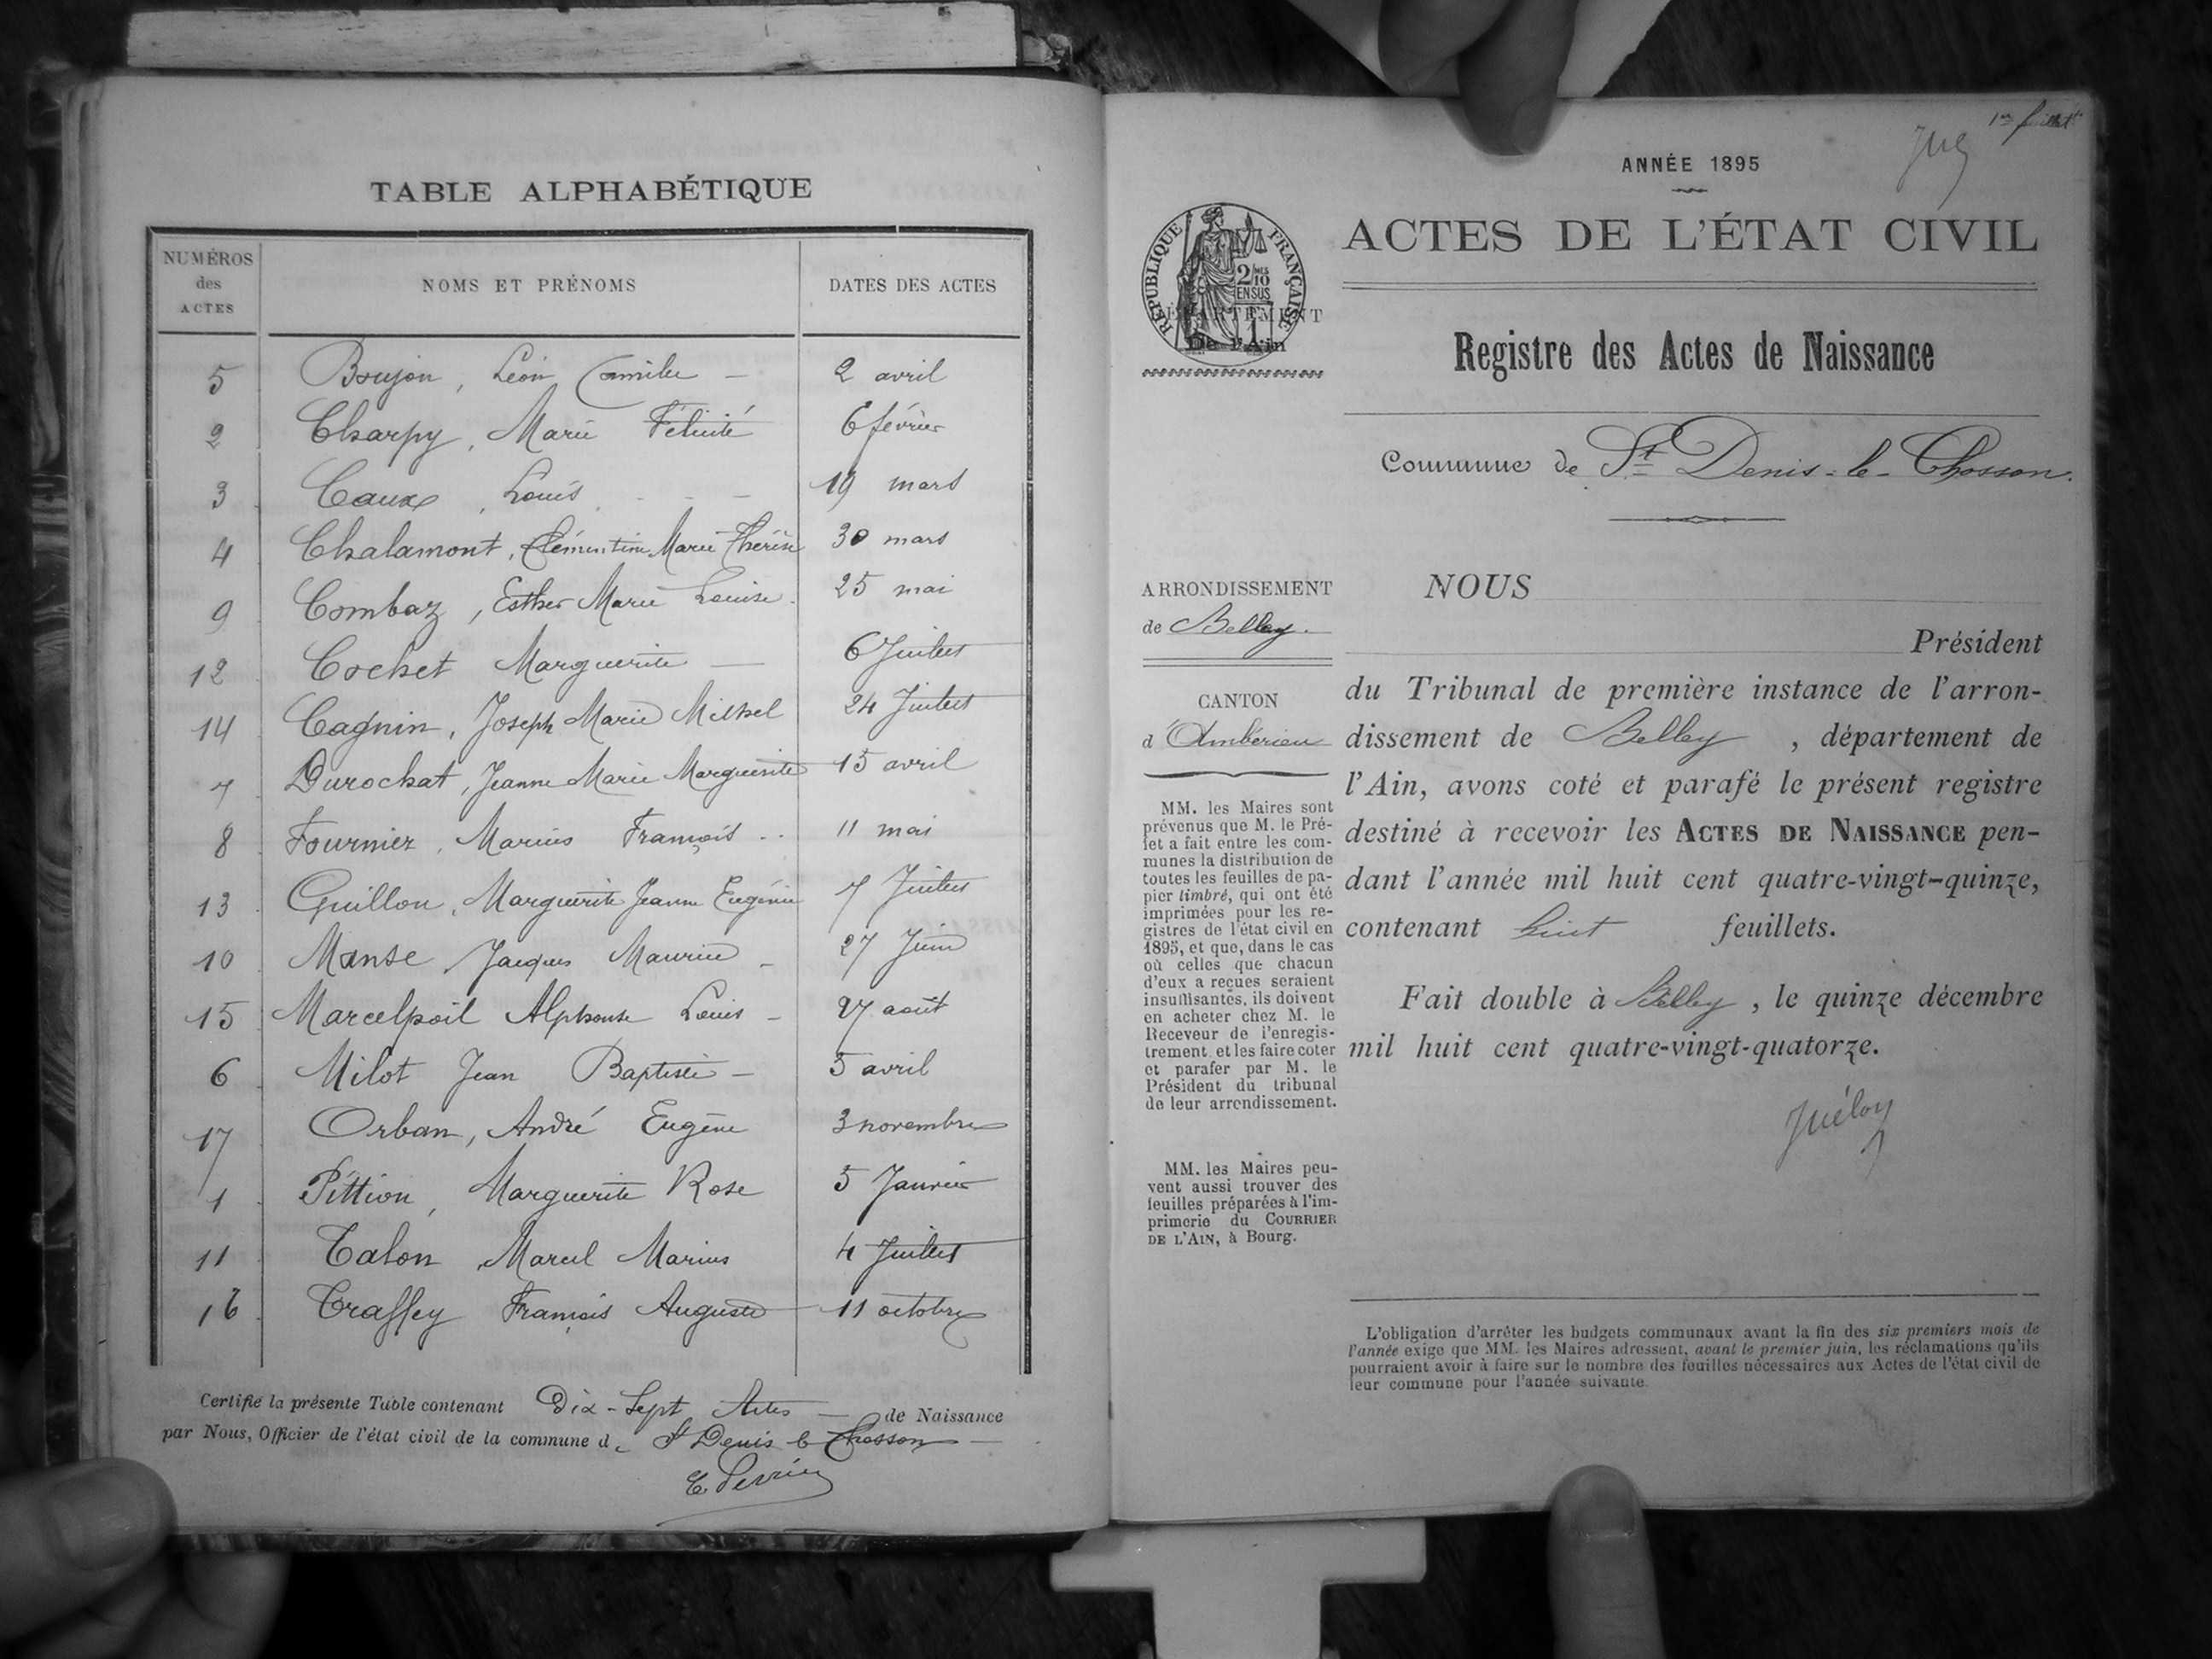 TABLE ALPHABÉTIQUE
NUMÉROS des ACTES NOMS ET PRÉNOMS DATES DES ACTES
5 Boujon, Léon Camille — 2 avril
2 Charpy, Marie Félicité 6 février
3 Caux, Louis - - - 19 mars
4 Chalamont, Clémentine Marie Thérèse 30 mars
9 Combaz, Esther Marie Louise. 25 mai
12 Cochet Marguerite — 6 Juillet
14 Cagnin, Joseph Marie Michel 24 Juillet
7 Durochat, Jeanne Marie Marguerite 15 avril
8 Fournier, Marius François .. 11 mai
13 Guillon, Marguerite Jeanne Eugénie 7 Juillet
10 Manse Jacques Maurice - 27 Juin
15 Marcelpoil Alphonse Louis - 27 août
6 Milot Jean Baptiste - 5 avril
17 Orban, André Eugène 3 novembre
1 Pittion, Marguerite Rose 5 Janvier
11 Talon, Marcel Marius 4 Juillet
16 Traffey François Auguste 11 octobre
Certifié la présente Table contenant Dix-Sept Actes — de Naissance
par Nous, Officier de l'état civil de la commune de St Denis le Chosson —
1er feuillet
ANNÉE 1895
RÉPUBLIQUE FRANÇAISE
2/10 EN SUS
ACTES DE L'ÉTAT CIVIL
DÉPARTEMENT
De l'Ain
Registre des Actes de Naissance
Commune de St Denis-le-Chosson.
ARRONDISSEMENT
de Belley.
CANTON
d'Ambérieu
MM. les Maires sont
prévenus que M. le Pré-
fet a fait entre les com-
munes la distribution de
toutes les feuilles de pa-
pier timbré, qui ont été
imprimées pour les re-
gistres de l'état civil en
1895, et que, dans le cas
où celles que chacun
d'eux a reçues seraient
insuffisantes, ils doivent
en acheter chez M. le
Receveur de l'enregis-
trement et les faire coter
et parafer par M. le
Président du tribunal
de leur arrondissement.
MM. les Maires peu-
vent aussi trouver des
feuilles préparées à l'im-
primerie du COURRIER
DE L'AIN, à Bourg.
NOUS
Président
du Tribunal de première instance de l'arron-
dissement de Belley, département de
l'Ain, avons coté et parafé le présent registre
destiné à recevoir les ACTES DE NAISSANCE pen-
dant l'année mil huit cent quatre-vingt-quinze,
contenant huit feuillets.
Fait double à Belley, le quinze décembre
mil huit cent quatre-vingt-quatorze.
L'obligation d'arrêter les budgets communaux avant la fin des six premiers mois de
l'année exige que MM. les Maires adressent, avant le premier juin, les réclamations qu'ils
pourraient avoir à faire sur le nombre des feuilles nécessaires aux Actes de l'état civil de
leur commune pour l'année suivante.